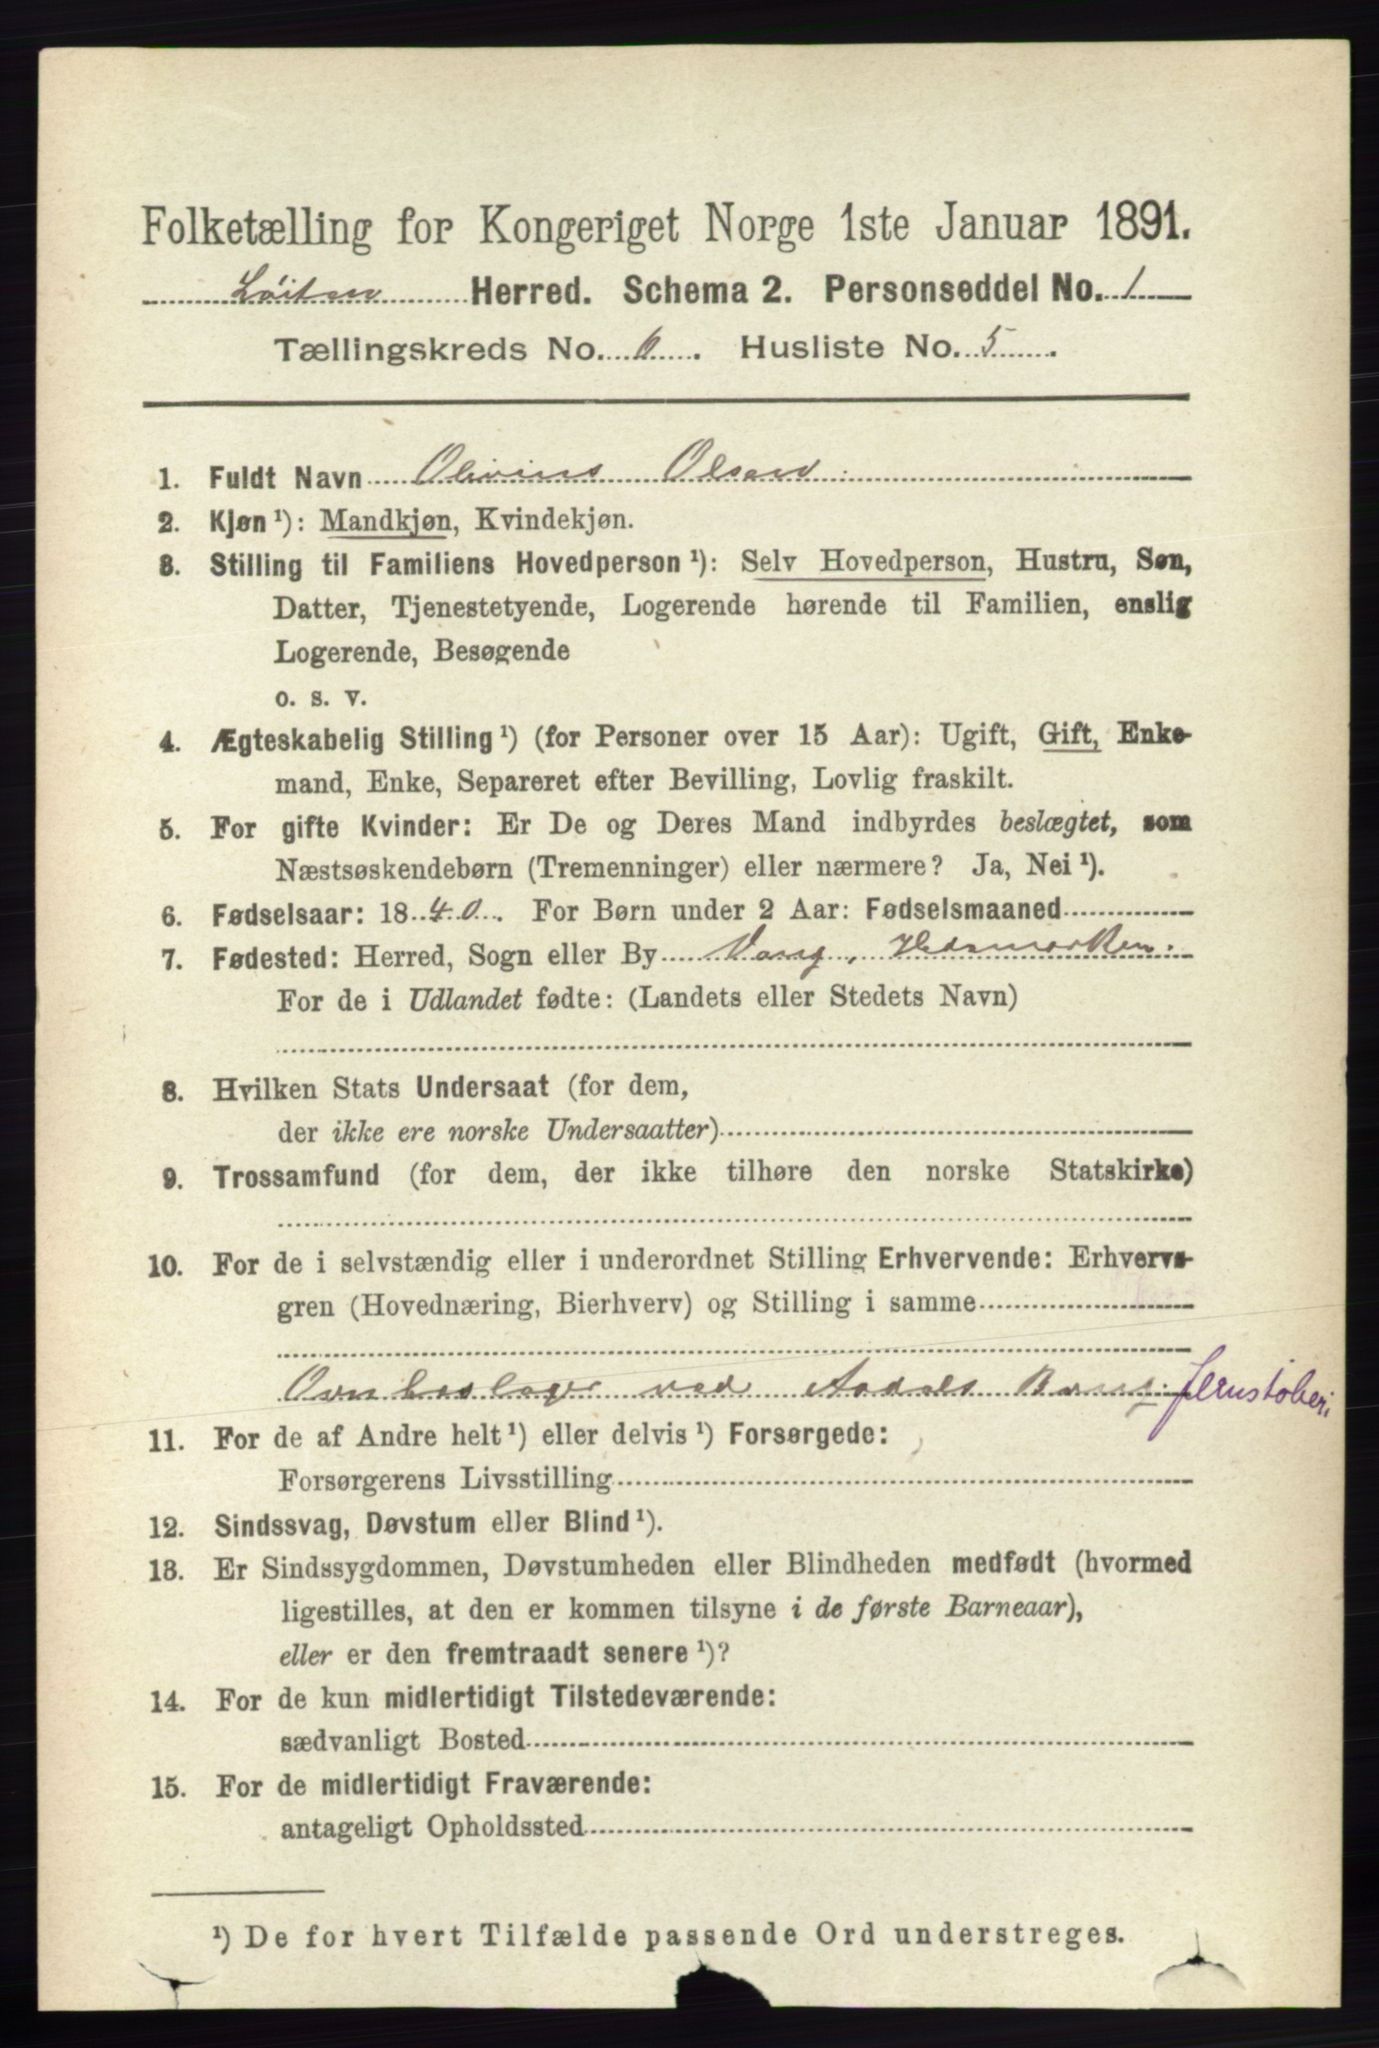 Folketælling for Kongeriget Norge 1ste Januar 1891.
Löiten Herred. Schema 2. Personseddel No. 1
Tællingskreds No. 6. Husliste No. 5.
1. Fuldt Navn Olivius Olsen.
2. Kjøn¹): Mandkjøn, Kvindekjøn.
3. Stilling til Familiens Hovedperson¹): Selv Hovedperson, Hustru, Søn,
Datter, Tjenestetyende, Logerende hørende til Familien, enslig
Logerende, Besøgende
o. s. v.
4. Ægteskabelig Stilling¹) (for Personer over 15 Aar): Ugift, Gift, Enke-
mand, Enke, Separeret efter Bevilling, Lovlig fraskilt.
5. For gifte Kvinder: Er De og Deres Mand indbyrdes beslægtet, som
Næstsøskendebørn (Tremenninger) eller nærmere? Ja, Nei¹).
6. Fødselsaar: 1840. For Børn under 2 Aar: Fødselsmaaned
7. Fødested: Herred, Sogn eller By Vang, Hedemarken.
For de i Udlandet fødte: (Landets eller Stedets Navn)
8. Hvilken Stats Undersaat (for dem,
der ikke ere norske Undersaatter)
9. Trossamfund (for dem, der ikke tilhøre den norske Statskirke)
10. For de i selvstændig eller i underordnet Stilling Erhvervende: Erhvervs-
gren (Hovednæring, Bierhverv) og Stilling i samme
Ovnbeslager ved Aadals Brug. Jernstøberi
11. For de af Andre helt¹) eller delvis¹) Forsørgede:
Forsørgerens Livsstilling
12. Sindssvag, Døvstum eller Blind¹).
13. Er Sindssygdommen, Døvstumheden eller Blindheden medfødt (hvormed
ligestilles, at den er kommen tilsyne i de første Barneaar),
eller er den fremtraadt senere¹)?
14. For de kun midlertidigt Tilstedeværende:
sædvanligt Bosted
15. For de midlertidigt Fraværende:
antageligt Opholdssted
¹) De for hvert Tilfælde passende Ord understreges.